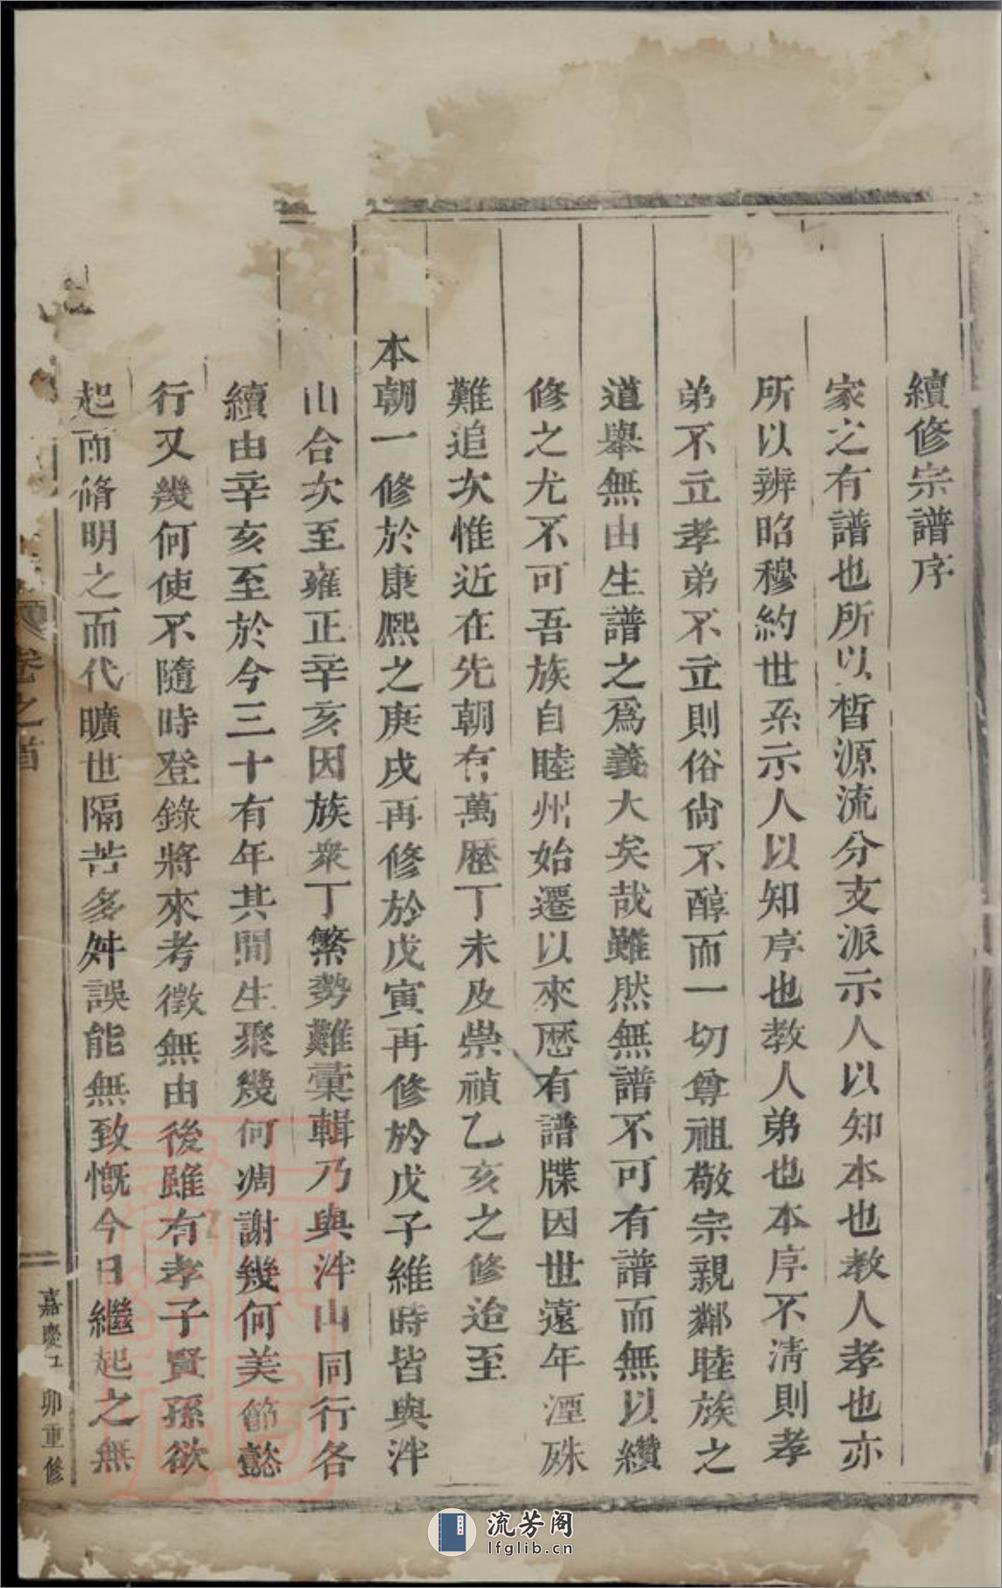 續修宗譜序
家之有譜也所以晳源流分支派示人以知本也教人孝也亦
所以辨昭穆約世系示人以知序也教人弟也本序不清則孝
弟不立孝弟不立則俗尙不醇而一切尊祖敬宗親鄰睦族之
道舉無由生譜之爲義大矣哉雖然無譜不可有譜而無以纘
修之尤不可吾族自睦州始遷以來歷有譜牒因世遠年湮殊
難追次惟近在先朝有萬歷丁未及崇禎乙亥之修迨至
本朝一修於康熙之庚戌再修於戊寅再修於戊子維時皆與泮
山合次至雍正辛亥因族衆丁繁勢難彙輯乃與泮山同行各
續由辛亥至於今三十有年其間生聚幾何凋謝幾何美節懿
行又幾何使不隨時登錄將來考徵無由後雖有孝子賢孫欲
起而脩明之而代曠世隔苦多舛誤能無致慨今日繼起之無
卷之首
嘉慶 卯重修
流芳阁
lfglib.cn